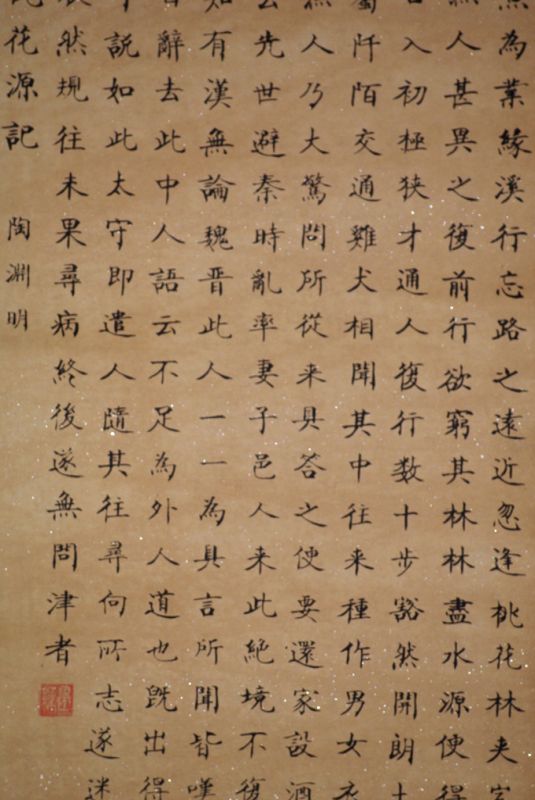 為業緣溪行忘路之遠近忽逢桃花林夾
人甚異之復前行欲窮其林林盡水源便得
入初極狹才通人復行数十步豁然開朗土
屬阡陌交通雞犬相聞其中往来種作男女衣
人乃大驚問所從来具答之便要還家設酒
云先世避秦時亂率妻子邑人来此絕境不復
知有漢無論魏晋此人一一為具言所聞皆嘆
辭去此中人語云不足為外人道也既出得
說如此太守即遣人隨其往尋向所志遂迷
然規往未果尋病終後遂無問津者
花源記 陶淵明